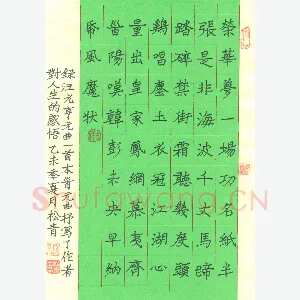 榮華夢一場功名紙半
張是非海波千丈馬蹄
踏碎禁街霜聽幾度頭
鷄唱塵土衣冠江湖心
量出皇家鳳網慕夷齊
首陽嘆韓彭未央早納
紙風魔狀
錄汪元亨元曲一首本首元曲抒寫了作者
對人生的感悟 乙未季夏月松青